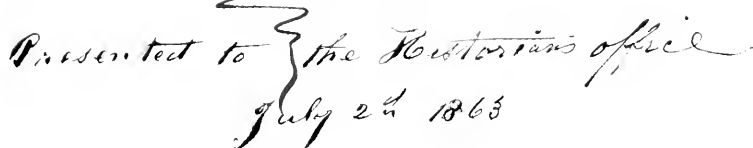 Presented to the Historians office
July 2d 1863